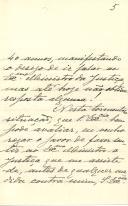 5
40 annos, manifestando
o desejo de ir falar ao
Exmo. Ministro da Justiça
mas até hoje não obtive
resposta alguma.
Nesta tormentosa
situação, que V. Exa. bem
pode avaliar, eu venho
rogar o favor de
ao Exmo. Ministro da
Justiça que me
da, antes de qualquer
dida contra mim, V. Exa.